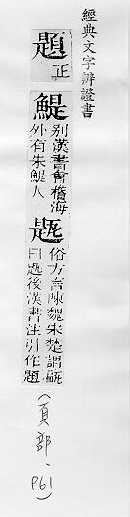 經典文字辨證書
題正
鯷別漢書會稽海
外有東鯷人
俗方言陳魏宋楚謂甂
曰後漢書注引作題
(頁部、P61)